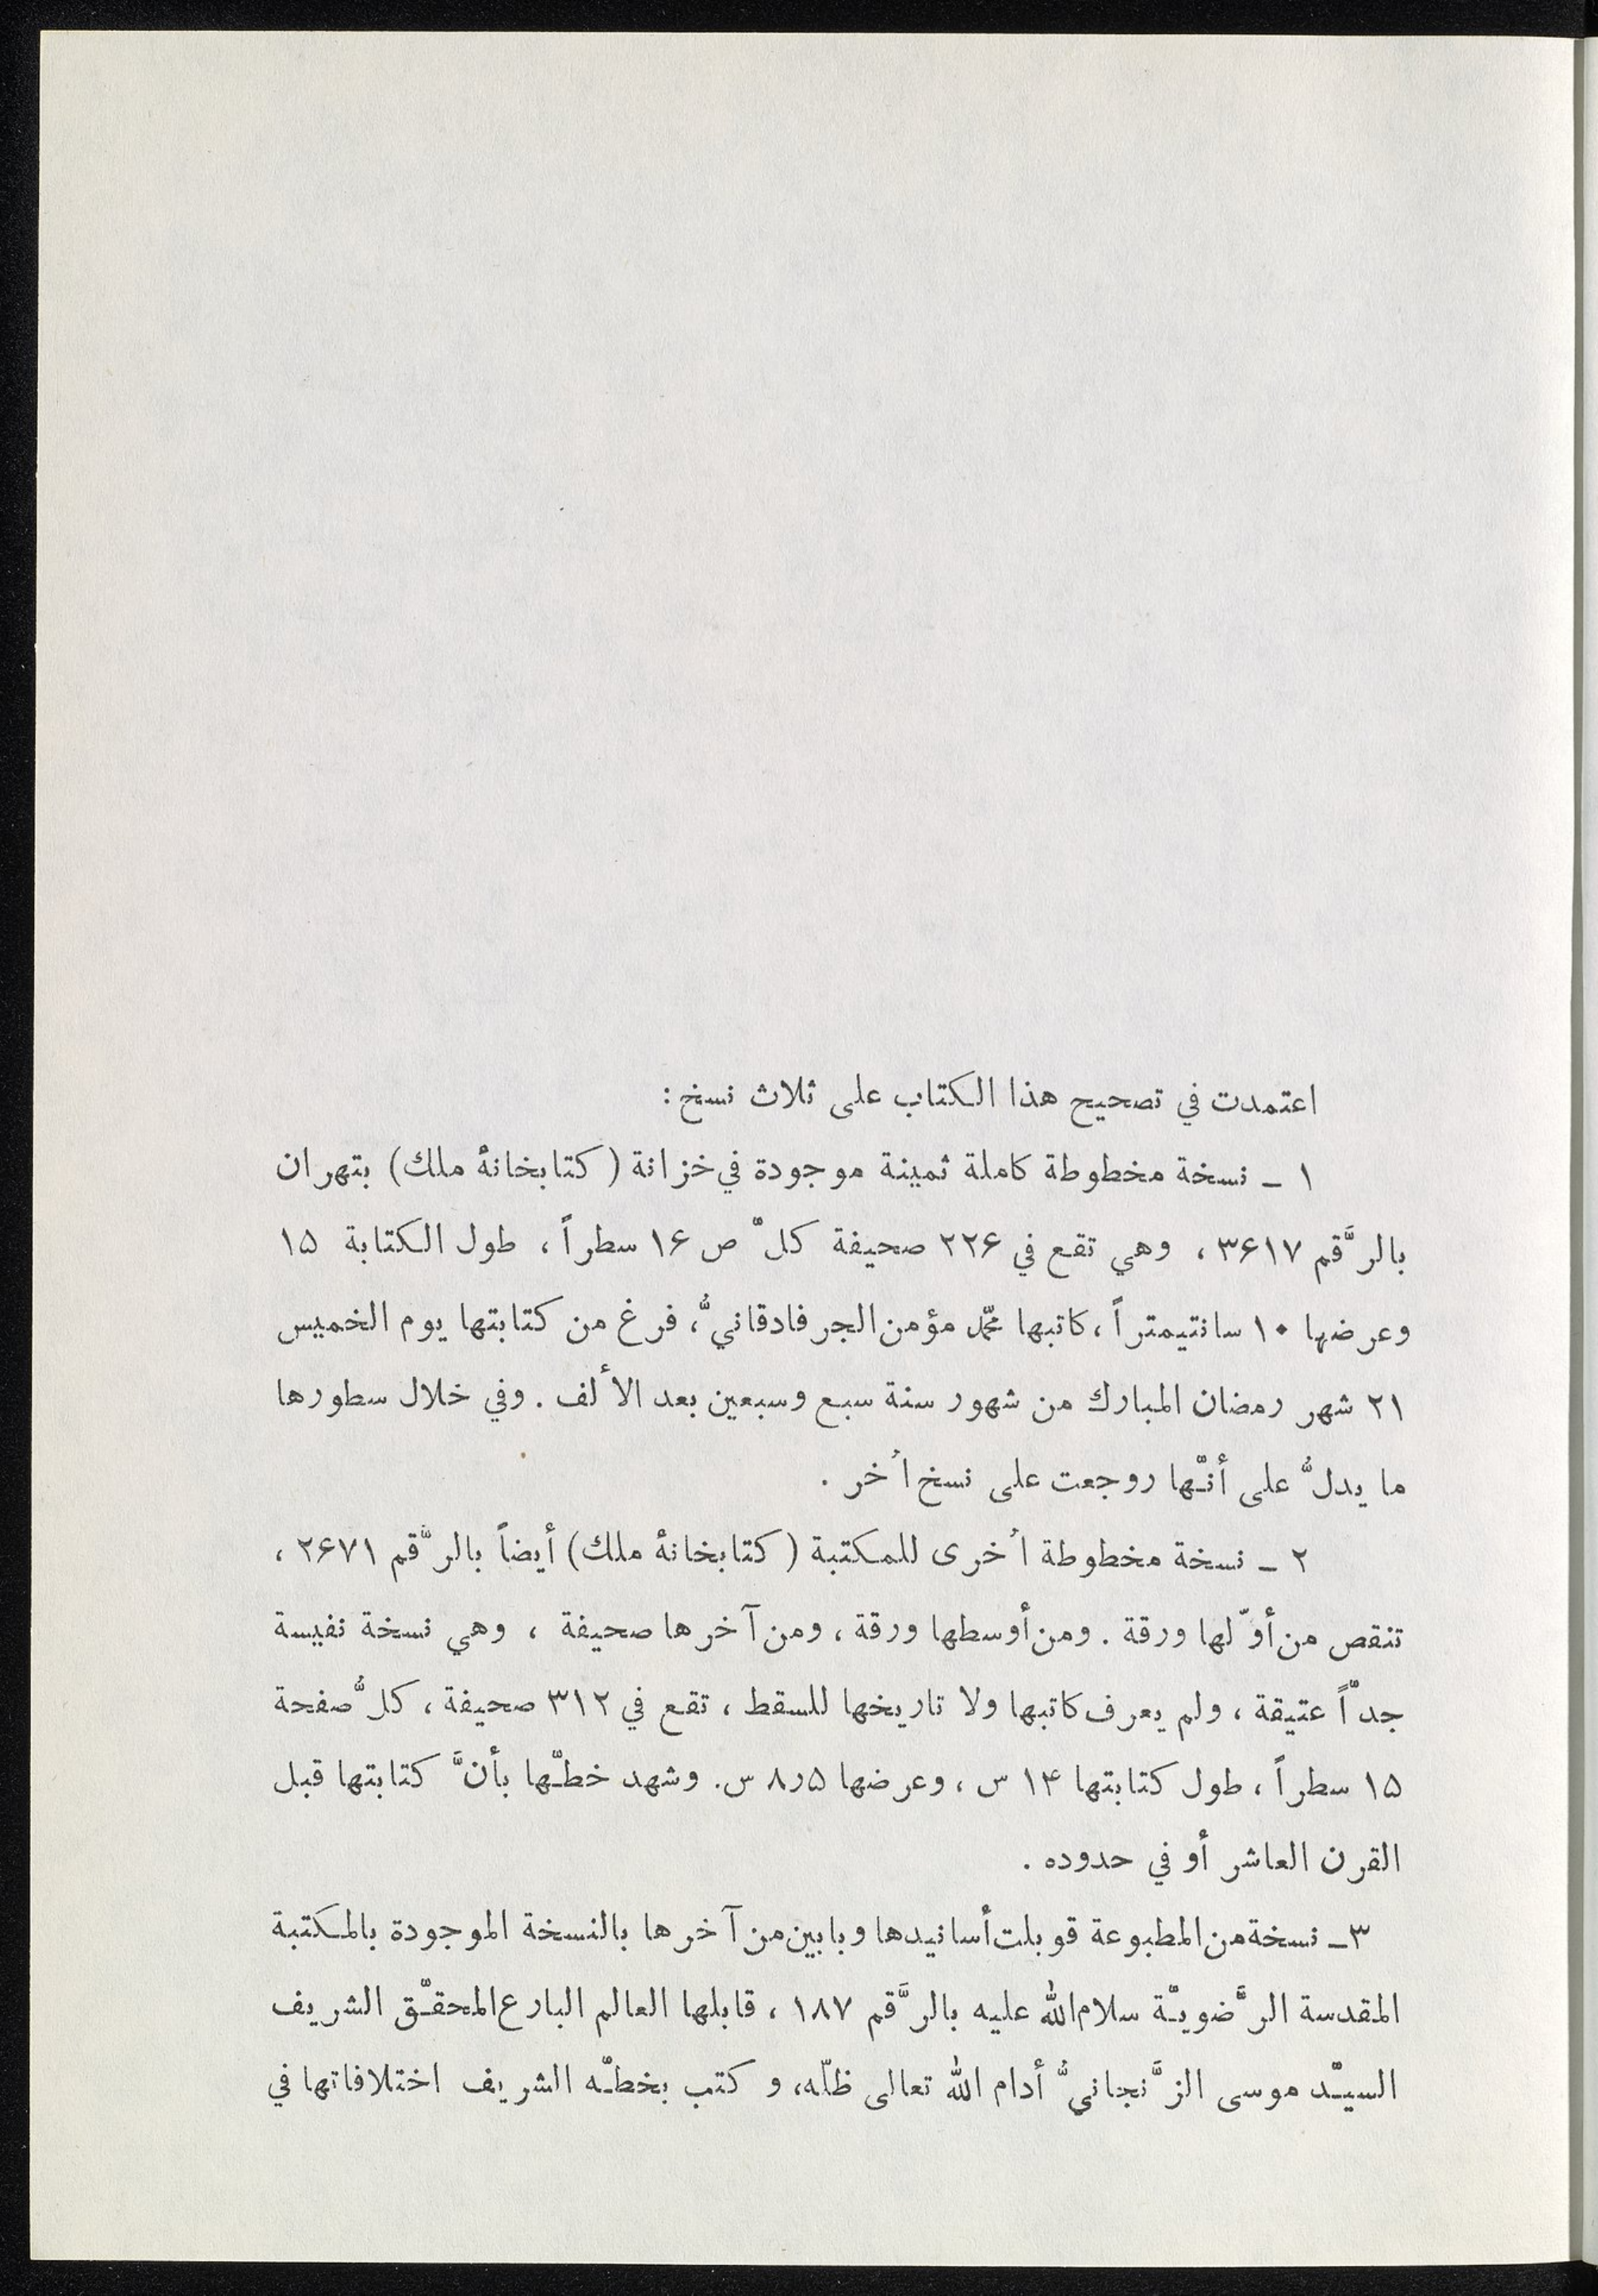 اعتمدت في تصحيح هذا الكتاب على ثلاث نسخ :
١ ـ نسخة مخطوطة كاملة ثمينة موجودة في خزانة (كتابخانهٔ ملك) بتهران
بالرَّقم ٣۶١٧ ، وهي تقع في ٢٢۶ صحيفة كلّ ص ١۶ سطراً ، طول الكتابة ١۵
وعرضها ١٠ سانتيمتراً ، كاتبها محمّد مؤمن الجرفادقانيُّ، فرغ من كتابتها يوم الخميس
٢١ شهر رمضان المبارك من شهور سنة سبع وسبعين بعد الألف . وفي خلال سطورها
ما يدلُّ على أنّها روجعت على نسخ اُخر .
٢ ـ نسخة مخطوطة اُخرى للمكتبة (كتابخانهٔ ملك) أيضاً بالرَّقم ٢۶٧١ ،
تنقص من أوّلها ورقة . ومن أوسطها ورقة ، ومن آخرها صحيفة ، وهي نسخة نفيسة
جدّاً عتيقة ، ولم يعرف كاتبها ولا تاريخها للسقط ، تقع في ٣١٢ صحيفة ، كلُّ صفحة
١۵ سطراً ، طول كتابتها ١۴ س ، وعرضها ٨ر۵ س. وشهد خطّها بأنَّ كتابتها قبل
القرن العاشر أو في حدوده .
٣ـ نسخة من المطبوعة قوبلت أسانيدها وبابين من آخرها بالنسخة الموجودة بالمكتبة
المقدسة الرَّضويّة سلام الله عليه بالرَّقم ١٨٧ ، قابلها العالم البارع المحقّق الشريف
السيّد موسى الزَّنجانيُّ أدام الله تعالى ظلّه، و كتب بخطّه الشريف اختلافاتها في